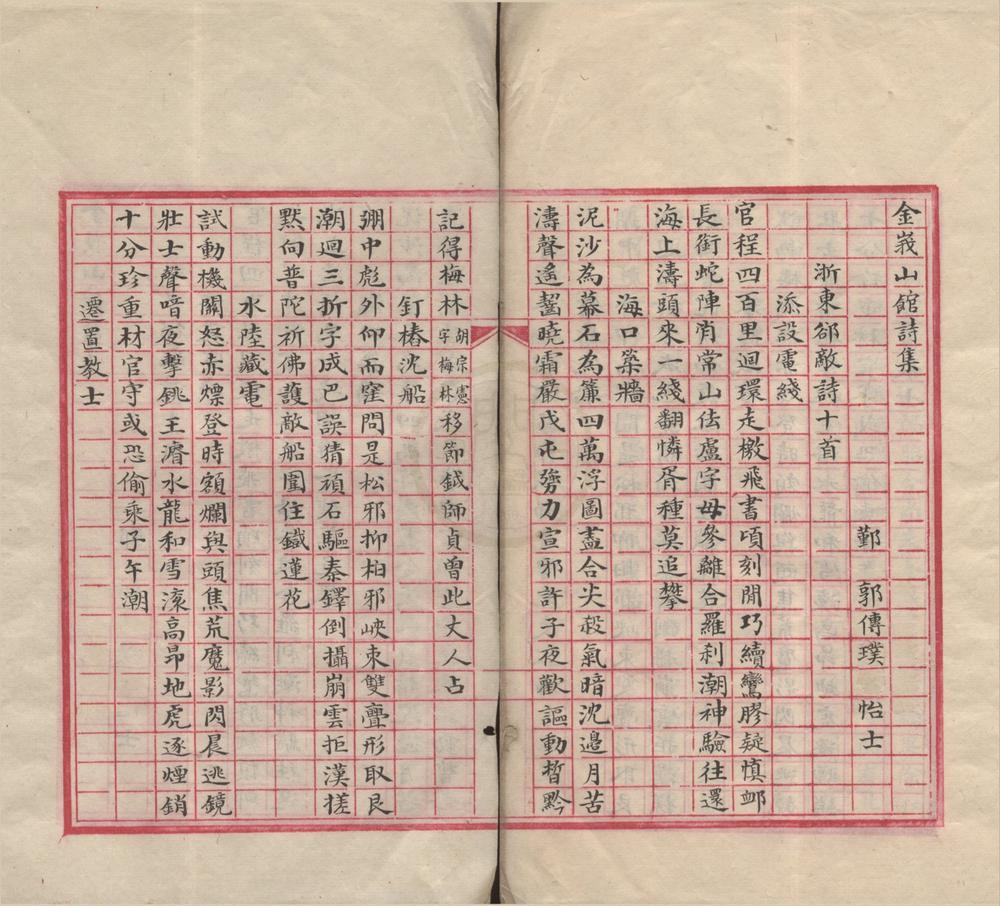 金峩山館詩集
浙東郤敵詩十首　鄞　郭傳璞　怡士
添設電綫
官程四百里迴環走檄飛書頃刻閒巧續鸞膠疑慎䘏
長銜蛇陣肖常山佉盧字母參離合羅刹潮神驗往還
海上濤頭來一綫翻憐胥種莫追攀
海口築牆
泥沙為幕石為簾四萬浮圖葢合尖殺氣暗沈邉月苦
濤聲遙齧曉霜嚴戊屯勞力宣邪許子夜歡謳動皙黔
記得梅林胡宗憲字梅林移節鉞師貞曾此丈人占
釘樁沈船
弸中彪外仰而窪問是松邪抑柏邪峽束雙亹形取艮
潮迴三折字成巴誤猜頑石驅秦鐸倒攝崩雲拒漢槎
默向普陀祈佛護敵船圍住鐵蓮花
水陸藏電
試動機關怒赤熛登時額爛與頭焦荒魔影閃晨逃鏡
壯士聲喑夜擊銚王濬水龍和雪滾高昂地虎逐煙銷
十分珍重材官守或恐偷乘子午潮
遷置教士